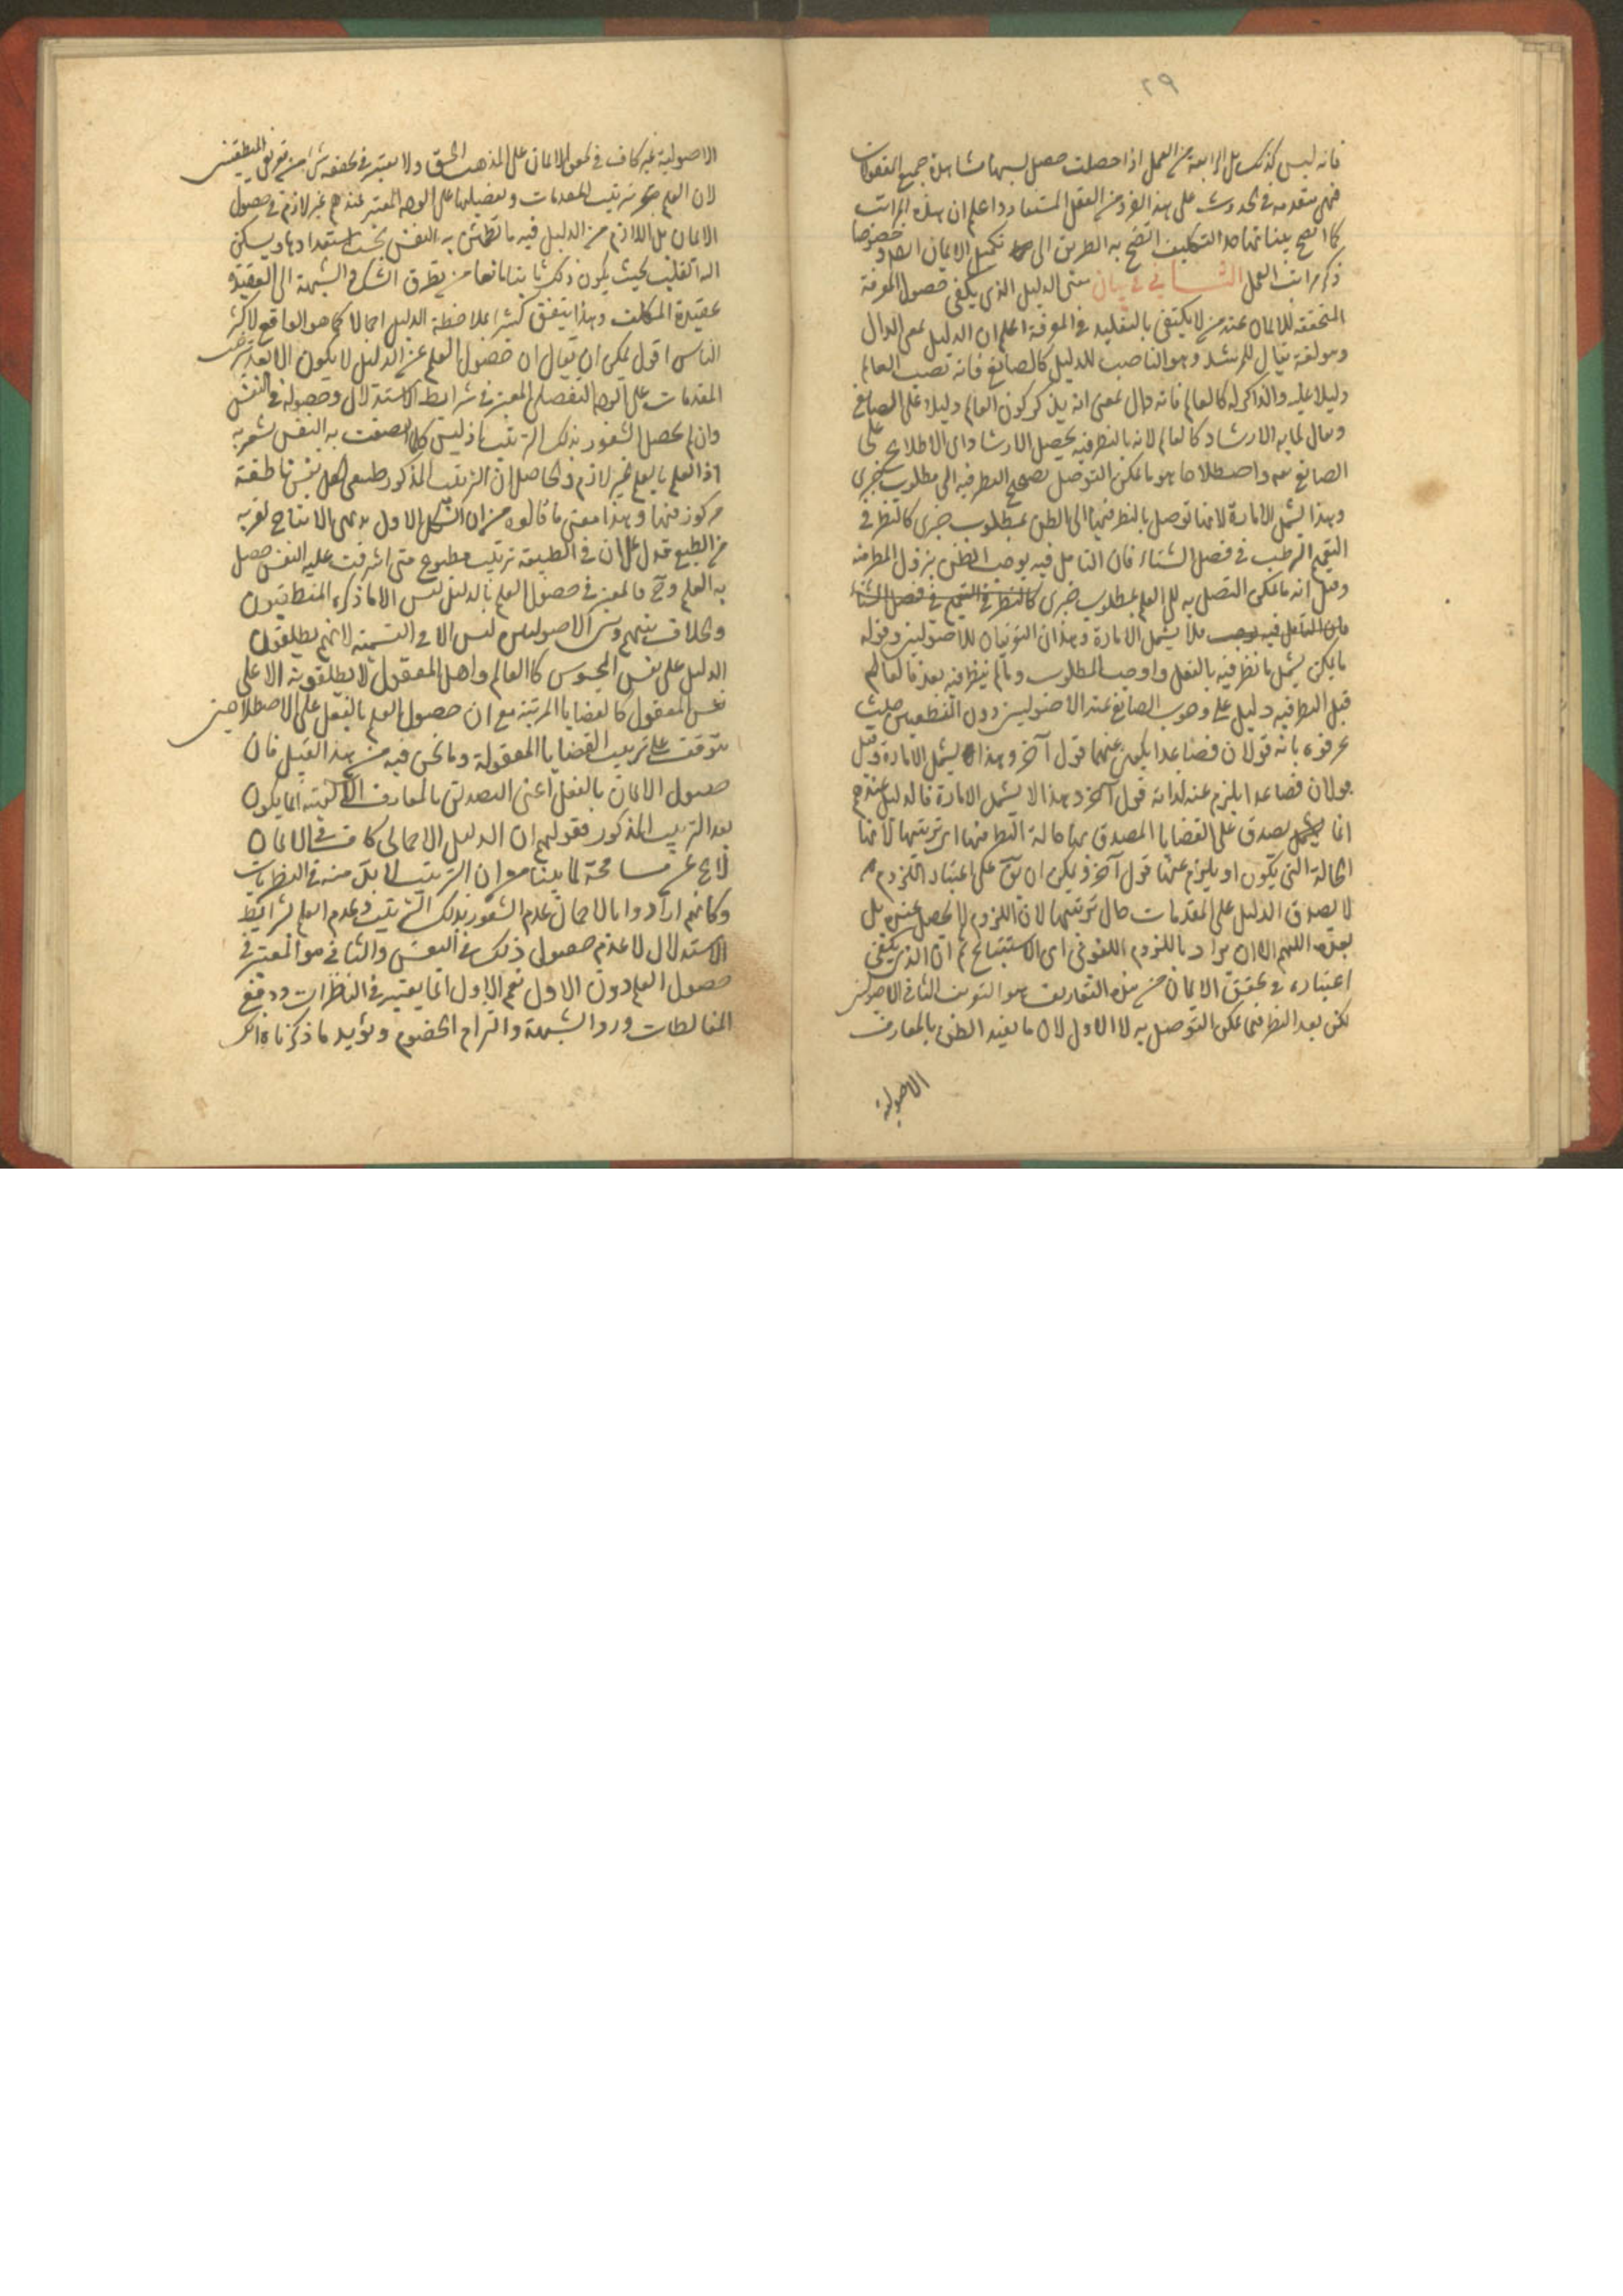 ٢٩
فانه ليس كذلك بل الرابعة من العمل اذا حصلت حصل بسببها مشاهدة جميع المعقولات
فهي متقدمة في الحدوث على هذا الفرد من العقل المستفاد واعلم ان هذه المراتب
كما اتضح بيناتها التكليف اتضح به الطريق الى تكميل الايمان خصوصا
ذكر مراتب العمل الثاني في بيان معنى الدليل الذي يكفي حصول المعرفة
المتحققة للايمان عند من لا يكتفي بالتقليد في المعرفة اعلم ان الدليل بمعنى الدال
وهو لغة يقال للمرشد وهو الناصب للدليل كالصانع فانه نصب العالم
دليلا عليه والذاكر له كالعالم فانه دال بمعنى انه يذكر كون العالم دليلا على الصانع
ويقال لما به الارشاد كالعالم لانه بالنظر فيه يحصل الارشاد اى الاطلاع على
الصانع واصطلاحا هو ما يمكن التوصل بصحيح النظر فيه الى مطلوب خبري
وهذا يشمل الامارة لانها توصل بالنظر فيها الى الظن بمطلوب خبري كالنظر في
الغيم الرطب في فصل الشتاء فان التامل فيه يوجب الظن بنزول المطر منه
وقيل انه ما يمكن التوصل به الى العلم بمطلوب خبري كالنظر في الغيم في فصل الشتاء
فان التامل فيه يوجب فلا يشمل الامارة وهذان التعريفان للاصوليين وقوله
ما يمكن يشمل ما نظر فيه بالفعل واوجب المطلوب وما لم ينظر فيه بعد فالعالم
قبل النظر فيه دليل على وجوب الصانع عند الاصوليين دون المنطقيين حيث
عرفوه بانه قولان فصاعدا يكون عنهما قول آخر وهذا يشمل الامارة وقيل
قولان فصاعدا يلزم عنه لذاته قول آخر وهذا لا يشمل الامارة فالدليل عندهم
انما يصدق على القضايا المصدق بها حالة النظر فيها اى ترتيبها لانها
الحالة التي يكون او يلزم عنها قول آخر ويمكن ان يق على اعتبار اللزوم
لا يصدق الدليل على المقدمات حال ترتيبها لان اللزوم لا يحصل عنده بل
بعده اللهم الا ان يراد باللزوم اللغوي اى الاستتباع ثم ان الذي يكفي
اعتباره في تحقق الايمان من هذه التعاريف هو التعريف الثاني للاصوليين
لكن بعد النظر فيما يمكن التوصل به لا الاول لان ما يفيد الظن بالمعارف
الاصولية
الاصولية غير كاف في تحقق الايمان على المذهب الحق ولا يعتبر في تحققه شئ من تعريفي المنطقيين
لان العلم بترتيب المقدمات وتفصيلها على الوجه المعتبر عندهم غير لازم في حصول
الايمان بل اللازم من الدليل فيه ما تطمئن به النفس بحسب استعدادها ويسكن
اليه القلب بحيث يكون ذلك ثابتا مانعا من تطرق الشك والشبهة الى العقيدة
عقيدة المكلف وهذا يتفق كثيرا بملاحظة الدليل اجمالا كما هو الواقع لاكثر
الناس اقول يمكن ان يقال ان حصول العلم عن الدليل لا يكون الا بعد ترتيب
المقدمات على الوجه التفصيلي المعتبر في شرايط الاستدلال وحصوله في النفس
وان لم يحصل الشعور بذلك الترتيب اذ ليس كلما اتصفت به النفس تشعر به
اذ العلم بالعلم غير لازم والحاصل ان الترتيب المذكور طبيعي لكل نفس ناطقة
مركوز فيها وهذا معنى ما قالوه من ان الشكل الاول بديهي الانتاج لقربه
من الطبع فدل على ان في الطبيعة ترتيب مطبوع متى اشرفت عليه النفس حصل
به العلم وح فالمعتبر في حصول العلم بالدليل ليس الا ما ذكره المنطقيون
والخلاف بينهم وبين الاصوليين ليس الا في التسمية لانهم يطلقون
الدليل على نفس المحسوس كالعالم واهل المعقول لا يطلقونه الا على
نفس المعقول كالقضايا المرتبة مع ان حصول العلم بالفعل على الاصطلاحين
يتوقف على ترتيب القضايا المعقولة وما نحن فيه من هذا القبيل فان
حصول الايمان بالفعل اعنى التصديق بالمعارف الالهية انما يكون
بعد الترتيب المذكور فقولهم ان الدليل الاجمالي كاف في الايمان
لا يخ عن مسامحة لما بينا من ان الترتيب لا بد منه في النظريات
وكانهم ارادوا بالاجمال عدم الشعور بذلك الترتيب وعدم العلم بشرايط
الاستدلال لا عدم حصول ذلك في النفس والثاني هو المعتبر في
حصول العلم دون الاول نعم الاول انما يعتبر في المناظرات ودفع
المغالطات ورد الشبهة والزام الخصوم ويؤيد ما ذكرناه